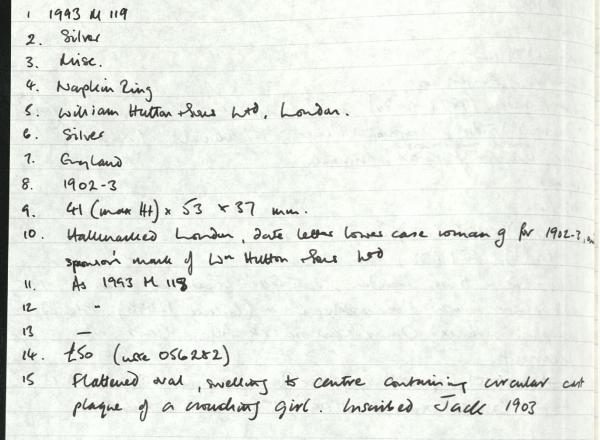 1 1993 M 119
2. Silver
3. Misc.
4. Napkin Ring
5. William Hutton + Sons Ltd, London.
6. Silver
7. England
8. 1902-3
9. 41 (max Ht) x 53 x 37 mm.
10. Hallmarked London, date letter lower case roman g for 1902-3, an
sponsor's mark of Wm Hutton + Sons Ltd
11. As 1993 M 118
12 "
13 —
14. £50 (note 056282)
15 Flattened oval, swelling to centre containing circular cast
plaque of a crouching girl. Inscribed Jack 1903